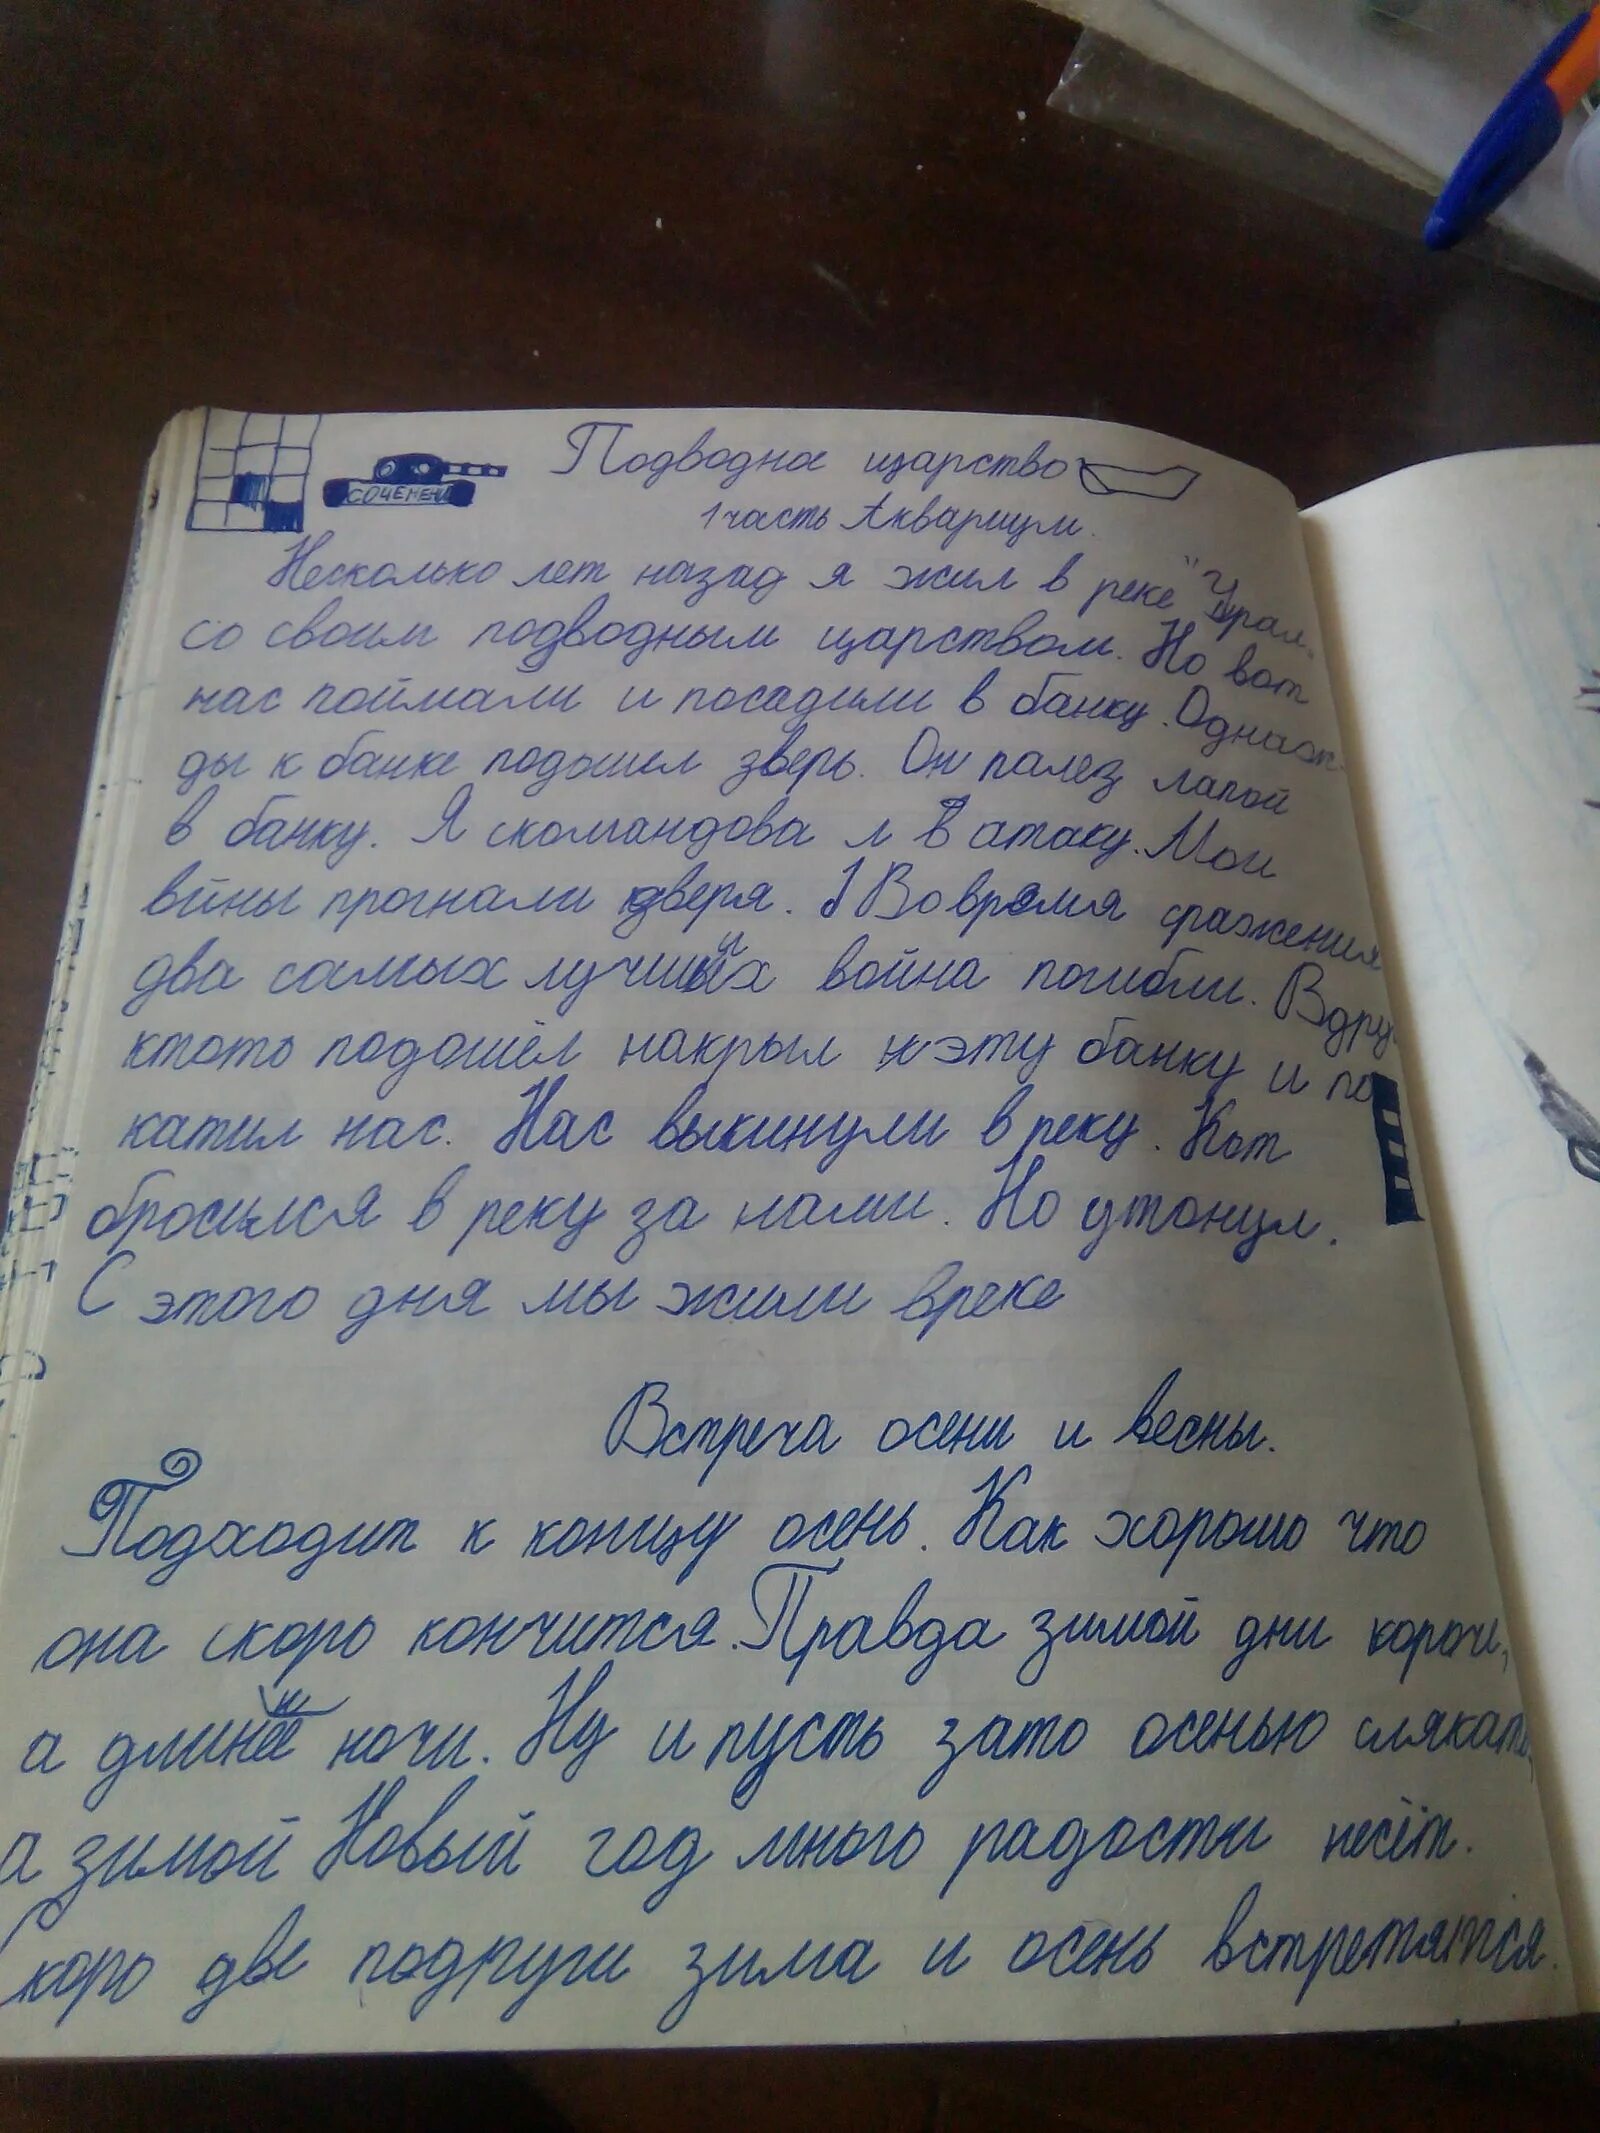 СОЧЕМЕНИ
Подводное щарство
1 часть Аквариум.
Несколько лет назад я жил в реке "Урал"
со своим подводным щарством. Но вот
нас поймали и посадили в банку. Однаж-
ды к банке подошел зверь. Он палез лапой
в банку. Я скомандова л В атаку. Мои
війны прогнали дверя. Во время сражения
два самых лучших война погибли. Вдруг
ктото подошёл накрыл эту банку и по
катил нас. Нас выкинули в реку. Кот
бросился в реку за нами. Но утонул.
С этого дня мы жили вреке
Встреча осени и весны.
Подходит к концу осень. Как хорошо что
она скоро кончится. Правда зимой дни короче,
а длинее ночи. Ну и пусть зато осенью слякать,
а зимой Новый год много радости несёт.
Скоро две подруги зима и осень встретятся.